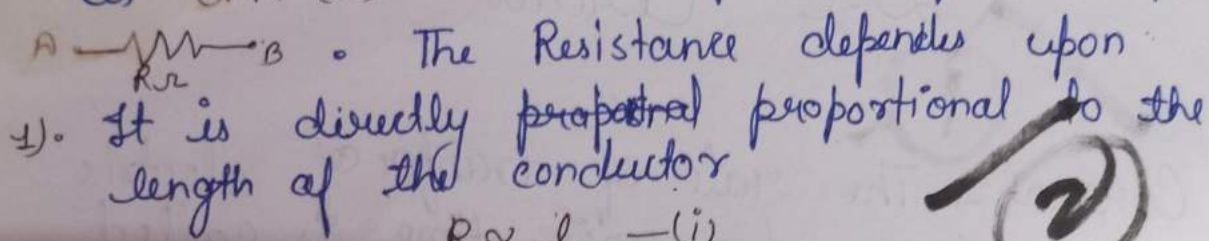 A B . The Resistance depends upon
RΩ
1). It is directly proportional to the
length of the conductor
R ∝ l —(i)
2